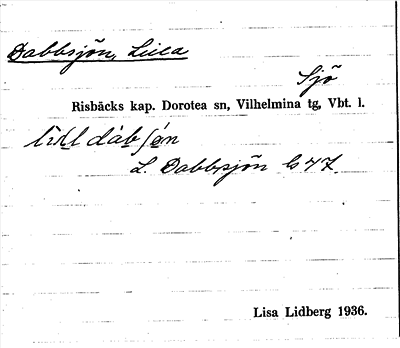 Dabbsjön, Lilla
Sjö
Risbäcks kap. Dorotea sn, Vilhelmina tg, Vbt. l.
L. Dabbsjön G 47
Lisa Lidberg 1936.